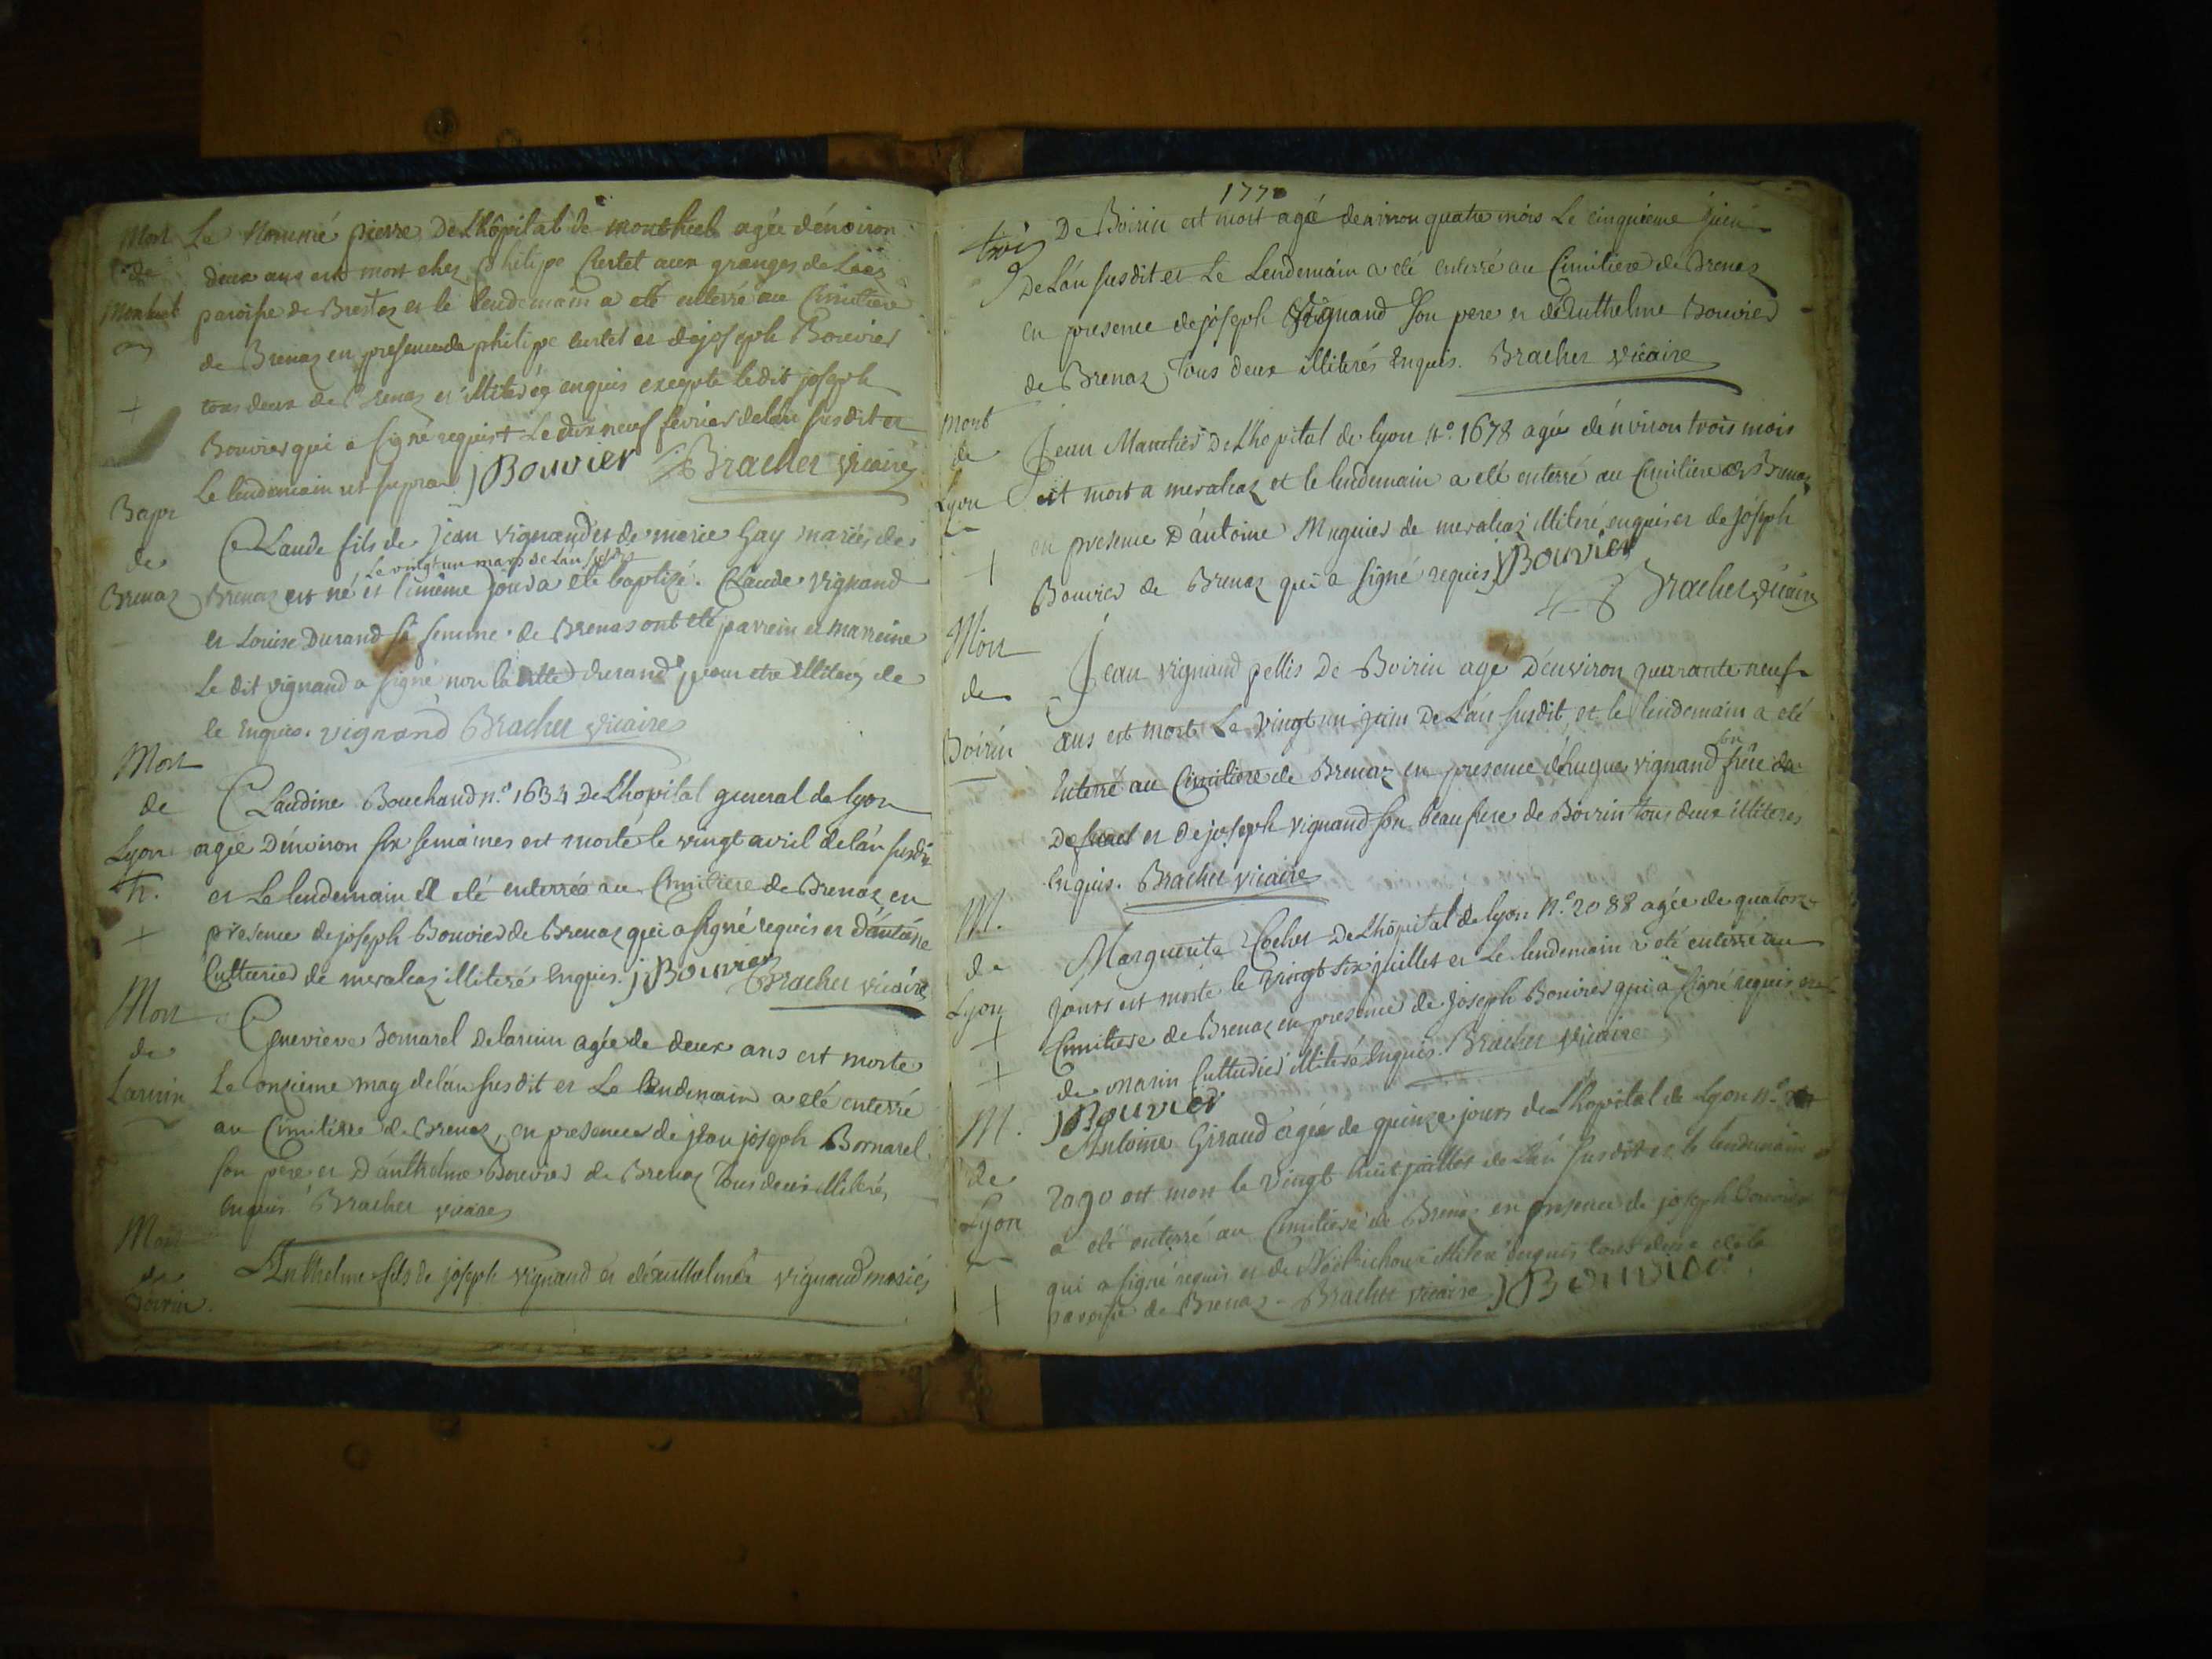 Mort
de
Montluel
Le Nommé pierre De Lhôpital de montluel agée dénviron
deux ans est mort chez philipe Curtet aux granges de
paroisse de et le lendemain a eté enterré au Cimitiere
de Brenaz en presence de philipe curtet et de joseph Bouvier
tous deux de Brenaz et illiterés enquis excepte ledit joseph
Bouvier qui a signé requis + Le dix neuf fevrier de lan susdit et
Le lendemain ut supra J Bouvier Bracher vicaire
Bapt
de
Brenaz
Claude fils de jean vignand et de marie Gay mariés de
Le vingt un mars de Lan susdit
Brenaz est né et le même jour a eté baptizé. Claude vignand
et Louise Durand sa femme de Brenas ont eté parrein et marreine
Le dit vignand a signé non la ditte durand pour etre illiterée de
le Enquise. vignand Bracher vicaire
Mort
de
Lyon
h.
Claudine Bouchaud n.o 1634 De Lhopital general de lyon
agée Dénviron six semaines est morte le vingt avril de lán susdit
et Le lendemain a eté enterrée au Cimitiere de Brenaz en
presence de joseph Bouvier de Brenaz qui a signé requis et d'antoine
Cutturier de meraleaz illiteré Enquis. J Bouvier Bracher vicaire
Mort
de
Laruin
Genevieve Bomarel de laruin agée de deux ans est morte
Le onzieme may de lán susdit et Le lendemain a eté enterré
au Cimitiere de Brenaz, en presence de jean joseph Bomarel
son pere et Dánthelme Bouvier de Brenaz Tous deux illiterés
enquis Bracher vicaire
Mort
de
Boirin.
Anthelme fils de joseph vignand et dánthelmée vignand mariés
1770
trois
De Boirin est mort agé denviron quatre mois Le cinquieme juin
De Lán susdit et Le Lendemain a eté enterré au Cimitiere de Brenaz
en presence de joseph Vignand son pere et dánthelme Bouvier
de Brenaz Tous deux illiterés Enquis. Bracher vicaire
mort
de
Lyon
Jean De Lhopital de lyon n.o 1678 agée dénviron trois mois
est mort a meraleaz et le lendemain a eté enterré au Cimitiere de Brenaz
en presence D'antoine Muguier de meraleaz illiteré enquis et de joseph
Bouvier de Brenaz qui a signé requis J Bouvier
Bracher vicaire
Mort
de
Boirin
Jean vignand pellis De Boirin agé Dénviron quarante neuf
ans est mort Le vingt un juin De Lán susdit et le lendemain a eté
Enterré au Cimitiere de Brenaz en presence d'hugue vignand son frere du
Defunct et de joseph vignand son beau frere de Boirin tous deux illiteres
Enquis. Bracher vicaire
M.
de
Lyon
Marguerite Cocher De Lhôpital de lyon N.o 2088 agée de quatorze
jours est morte le vingt six juillet et Le lendemain a eté enterré au
Cimitiere de Brenaz en presence de Joseph Bouvier qui a signé requis et
de marin Cutturier illiteré Enquis. Bracher vicaire
J Bouvier
M.
de
Lyon
Antoine Giraud agée de quinze jours de Lhopital de Lyon n.o
2090 est mort le vingt huit juillet de Lán susdit et le lendemain
a eté enterré au Cimitiere de Brenaz en presence de joseph Bouvier
qui a signé requis et de illiteré enquis tous deux de la
paroisse de Brenaz - Bracher vicaire J Bouvier